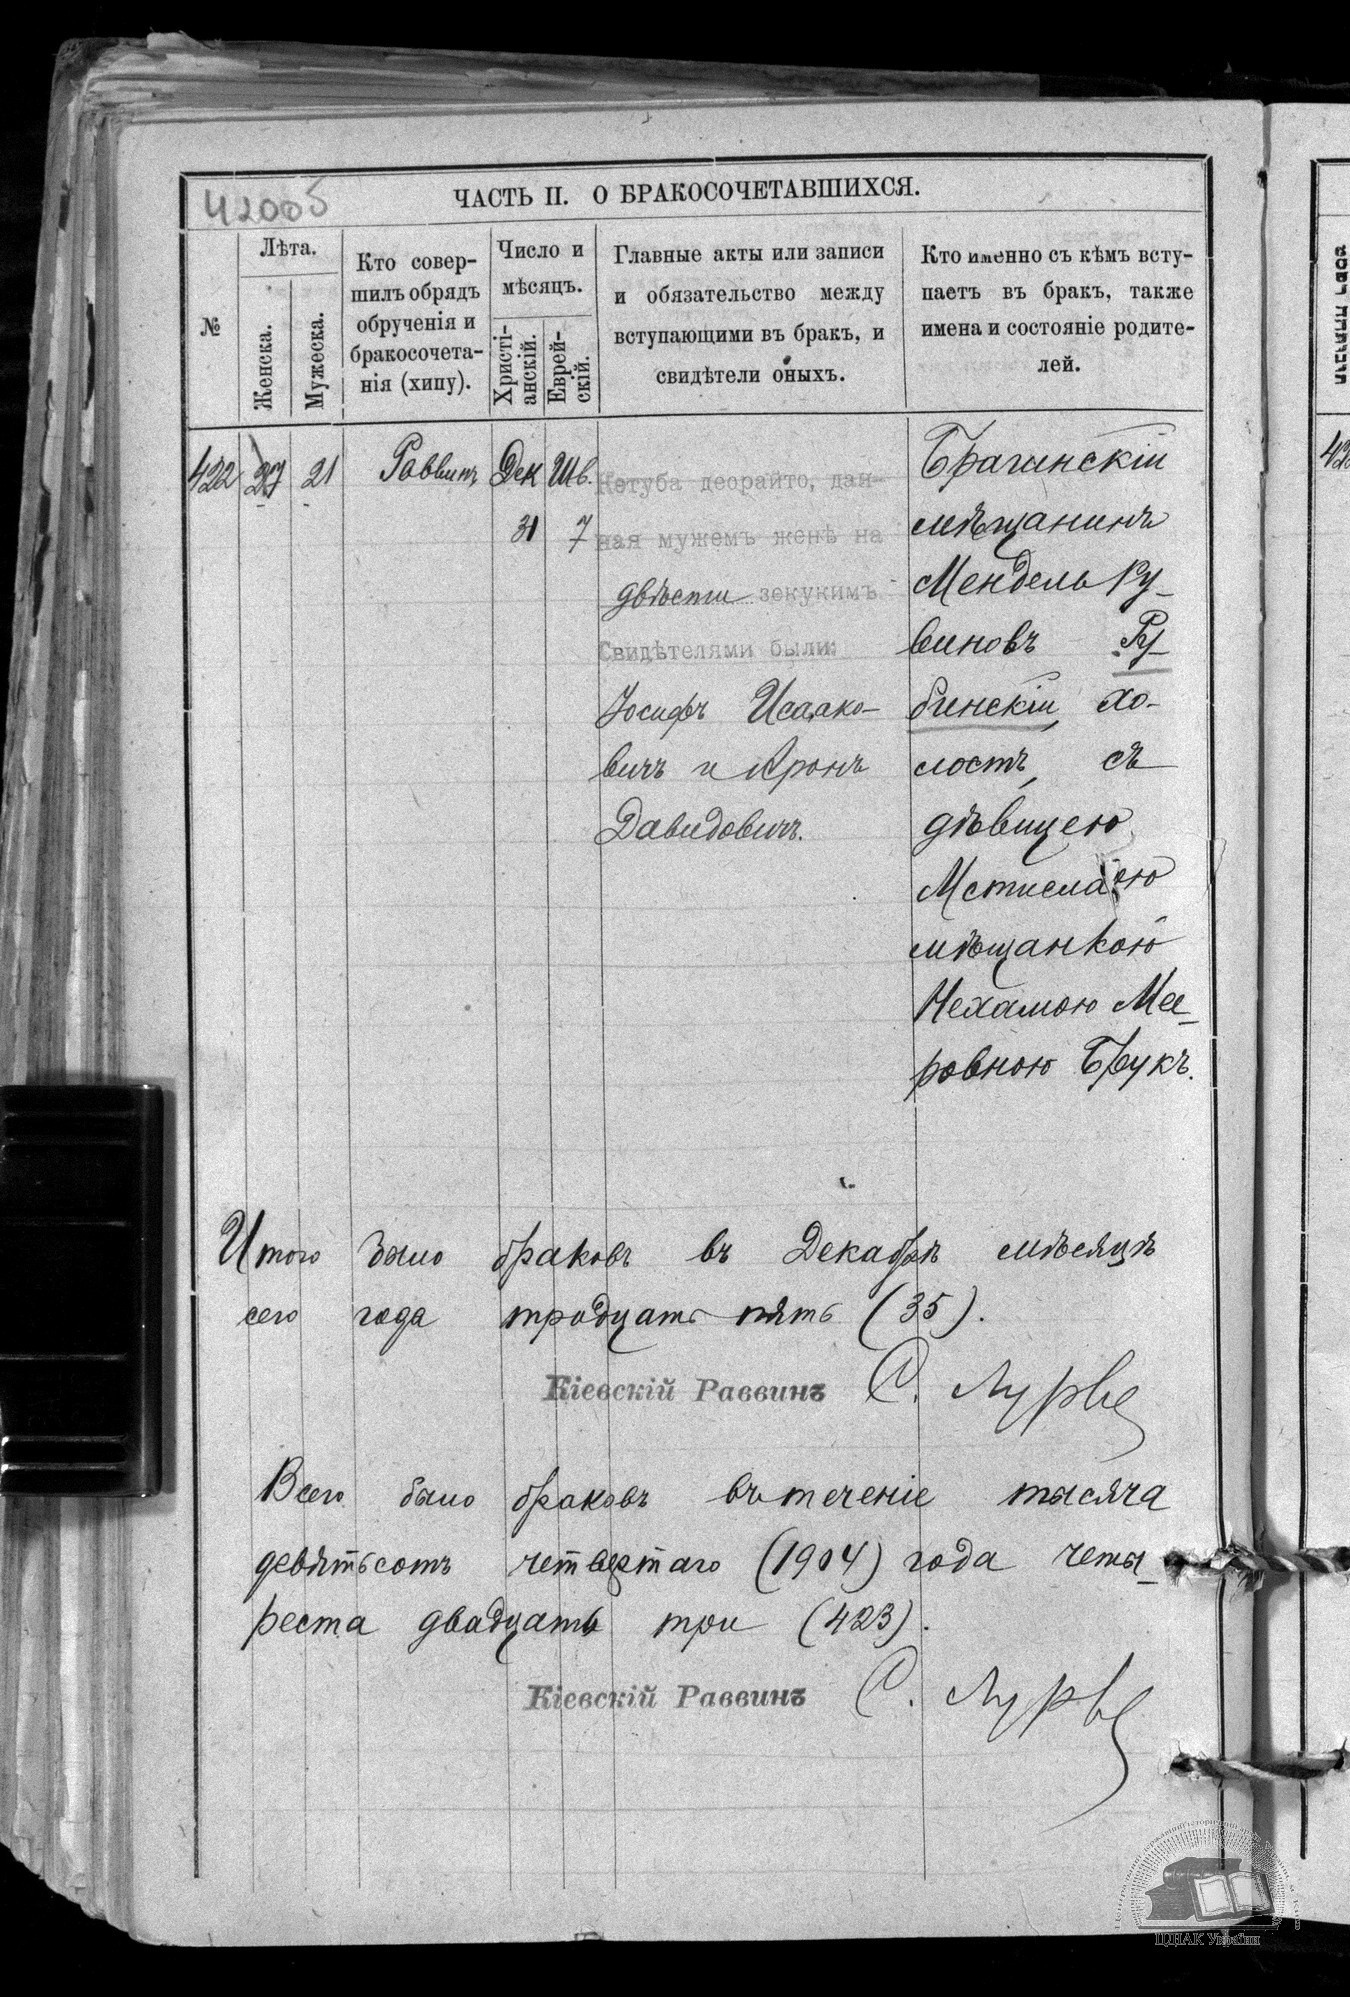 42005
ЧАСТЬ II. О БРАКОСОЧЕТАВШИХСЯ.
№
Лѣта.
Женска.
Мужеска.
Кто совер-
шилъ обрядъ
обрученія и
бракосочета-
нія (хипу).
Число и
мѣсяцъ.
Христі-
анскій.
Еврей-
скій.
Главные акты или записи
и обязательство между
вступающими въ бракъ, и
свидѣтели оныхъ.
Кто именно съ кѣмъ всту-
паетъ въ бракъ, также
имена и состояніе родите-
лей.
422 27 21 Раввинъ Дек Шв.
31 7
Кетуба деорайто, дан-
ная мужемъ женѣ на
двѣсти зекукимъ
Свидѣтелями были:
Іосифъ Исаако-
вичъ и Аронъ
Давидовичъ.
Брагинскій
мѣщанинъ
Мендель Ру-
виновъ Ру-
бинскій, хо-
лостъ, съ
дѣвицею
мѣщанкой
Нехамою Мее-
ровною Брукъ.
Итого было браковъ въ Декабрѣ мѣсяцѣ
сего года тридцать пять (35).
Кіевскій Раввинъ С. Лурье
Всего было браковъ въ теченіе тысяча
девятьсотъ четвертаго (1904) года четы-
реста двадцать три (423).
Кіевскій Раввинъ С. Лурье
ЦДІАК України